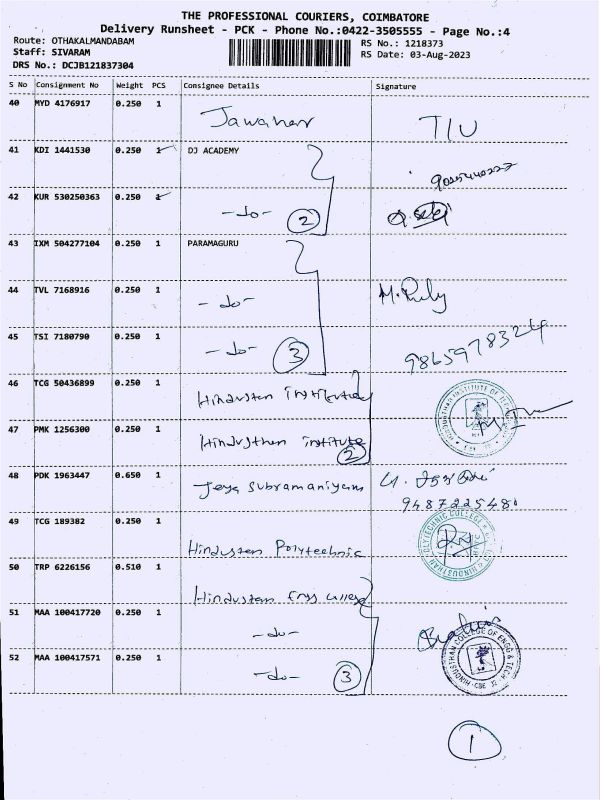 THE PROFESSIONAL COURIERS, COIMBATORE
Delivery Runsheet - PCK - Phone No.:0422-3505555 - Page No.:4
Route: OTHAKALMANDABAM
RS No.: 1218373
Staff: SIVARAM
RS Date: 03-Aug-2023
DRS No.: DCJB121837304
S No Consignment No Weight PCS Consignee Details Signature
40 MYD 4176917 0.250 1 Jawahar T/U
41 KDI 1441530 0.250 1 DJ ACADEMY
42 KUR 530250363 0.250 1 -do- 2
43 IXM 504277104 0.250 1 PARAMAGURU
44 TVL 7168916 0.250 1 -do- M.
45 TSI 7180790 0.250 1 -do- 3 9865978324
46 TCG 50436899 0.250 1 Hindustan institute
47 PMK 1256300 0.250 1 Hindusthan institute 2
48 PDK 1963447 0.650 1 Jeya Subramaniyam
9487225480
49 TCG 189382 0.250 1 Hindustan Polytechnic
50 TRP 6226156 0.510 1 Hindustan Engg college
51 MAA 100417720 0.250 1 -do-
52 MAA 100417571 0.250 1 -do- 3
HINDUSTHAN COLLEGE OF ENGG & TECH
CBE 32
1